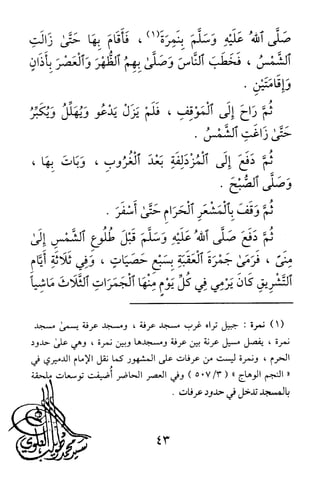 صَلَّى ٱللهُ عَلَيْهِ وَسَلَّمَ بِنَمِرَةَ (١) ، فَأَقَامَ بِهَا حَتَّىٰ زَالَتِ
ٱلشَّمْسُ ، فَخَطَبَ ٱلنَّاسَ وَصَلَّىٰ بِهِمُ ٱلظُّهْرَ وَٱلْعَصْرَ بِأَذَانٍ
وَإِقَامَتَيْنِ .
ثُمَّ رَاحَ إِلَى ٱلْمَوْقِفِ ، فَلَمْ يَزَلْ يَدْعُو وَيُهَلِّلُ وَيُكَبِّرُ
حَتَّىٰ زَاغَتِ ٱلشَّمْسُ .
ثُمَّ دَفَعَ إِلَى ٱلْمُزْدَلِفَةِ بَعْدَ ٱلْغُرُوبِ ، وَبَاتَ بِهَا ،
وَصَلَّى ٱلصُّبْحَ .
ثُمَّ وَقَفَ بِٱلْمَشْعَرِ ٱلْحَرَامِ حَتَّىٰ أَسْفَرَ .
ثُمَّ دَفَعَ صَلَّى ٱللهُ عَلَيْهِ وَسَلَّمَ قَبْلَ طُلُوعِ ٱلشَّمْسِ إِلَىٰ
مِنىً ، فَرَمَىٰ جَمْرَةَ ٱلْعَقَبَةِ بِسَبْعِ حَصَيَاتٍ ، وَفِي ثَلَاثَةِ أَيَّامِ
ٱلتَّشْرِيقِ كَانَ يَرْمِي فِي كُلِّ يَوْمٍ مِنْهَا ٱلْجَمَرَاتِ ٱلثَّلَاثَ مَاشِياً
(١) نمرة : جبيل تراه غرب مسجد عرفة ، ومسجد عرفة يسمىٰ مسجد
نمرة ، يفصل مسيل عرنة بين عرفة ومسجدها وبين نمرة ، وهي علىٰ حدود
الحرم ، ونمرة ليست من عرفات على المشهور كما نقل الإمام الدميري في
« النجم الوهاج » ( ٣/ ٥٠٧ ) وفي العصر الحاضر أُضيفت توسعات ملحقة
بالمسجد تدخل في حدود عرفات .
٤٣